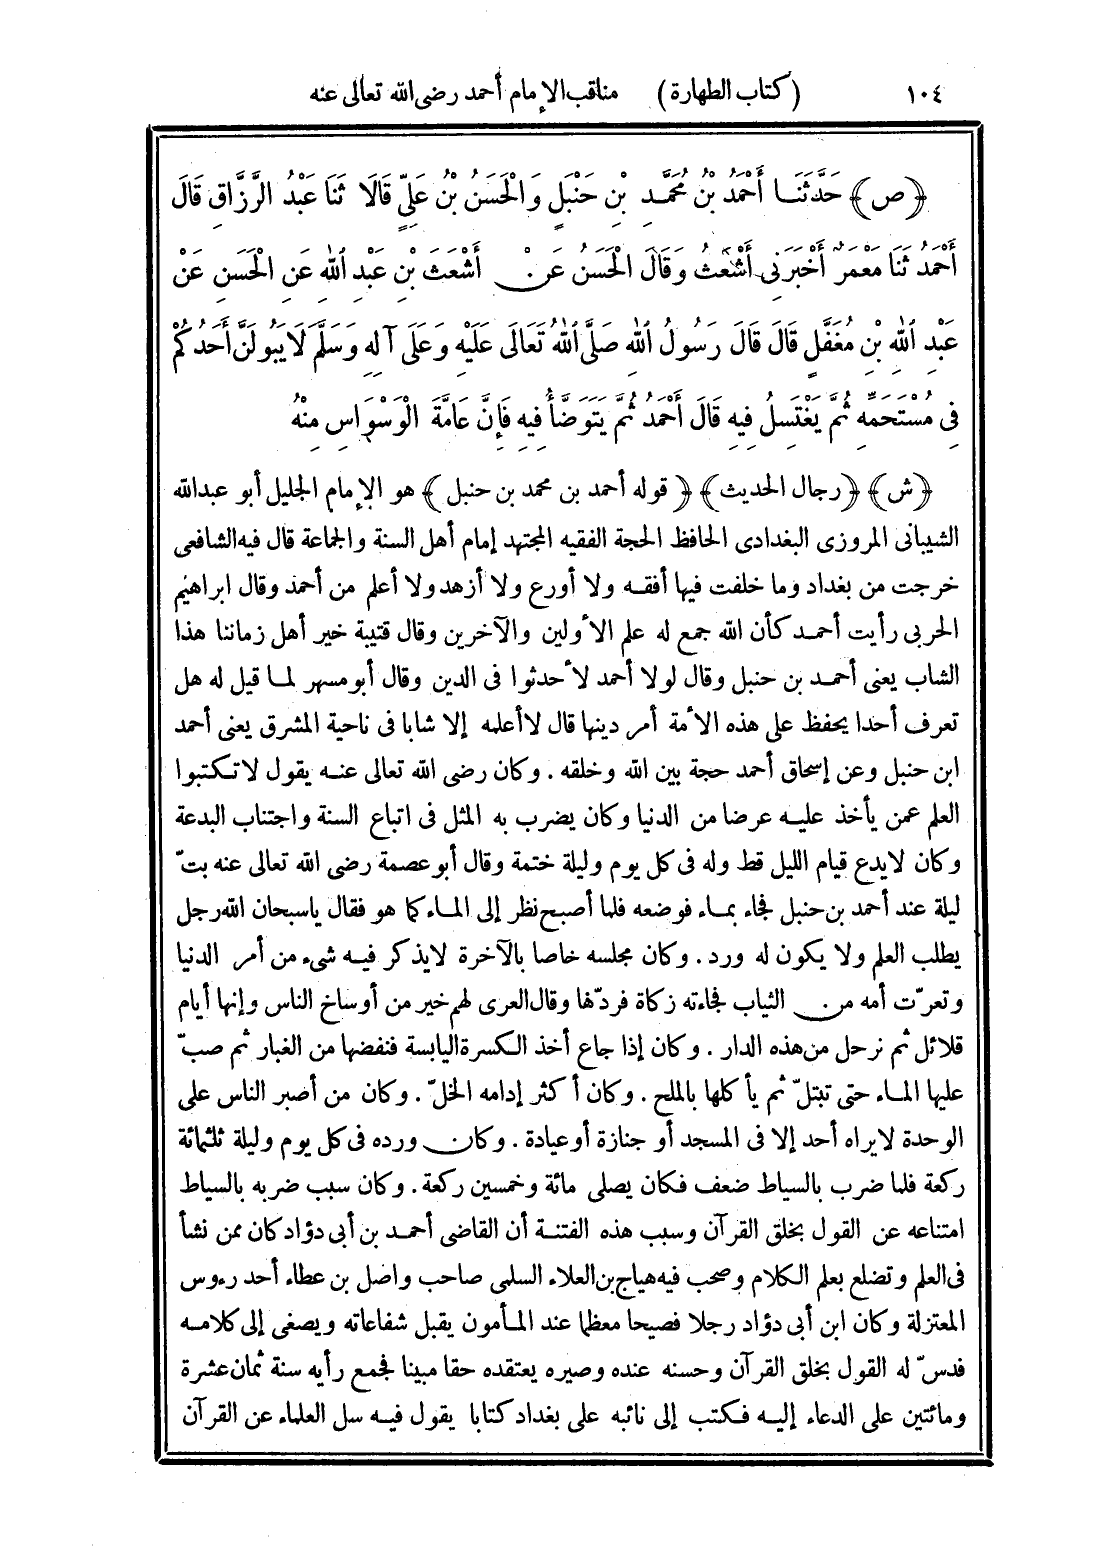 ١٠٤ (كتاب الطهارة) مناقب الإمام أحمد رضى الله تعالى عنه
﴿ص﴾ حَدَّثَنَا أَحْمَدُ بْنُ مُحَمَّدِ بْنِ حَنْبَلٍ وَالْحَسَنُ بْنُ عَلِيٍّ قَالَا ثَنَا عَبْدُ الرَّزَّاقِ قَالَ
أَحْمَدُ ثَنَا مَعْمَرٌ أَخْبَرَنِى أَشْعَثُ وَقَالَ الْحَسَنُ عَنْ أَشْعَثَ بْنِ عَبْدِ اللهِ عَنِ الْحَسَنِ عَنْ
عَبْدِ اللهِ بْنِ مُغَفَّلٍ قَالَ قَالَ رَسُولُ اللهِ صَلَّى اللهُ تَعَالَى عَلَيْهِ وَعَلَى آلِهِ وَسَلَّمَ لَا يَبُولَنَّ أَحَدُكُمْ
فِى مُسْتَحَمِّهِ ثُمَّ يَغْتَسِلُ فِيهِ قَالَ أَحْمَدُ ثُمَّ يَتَوَضَّأُ فِيهِ فَإِنَّ عَامَّةَ الْوَسْوَاسِ مِنْهُ
﴿ش﴾ ﴿رجال الحديث﴾ ﴿قوله أحمد بن محمد بن حنبل﴾ هو الإمام الجليل أبو عبدالله
الشيبانى المروزى البغدادى الحافظ الحجة الفقيه المجتهد إمام أهل السنة والجماعة قال فيه الشافعى
خرجت من بغداد وما خلفت فيها أفقه ولا أورع ولا أزهد ولا أعلم من أحمد وقال ابراهيم
الحربى رأيت أحمد كأن الله جمع له علم الأولين والآخرين وقال قتيبة خير أهل زماننا هذا
الشاب يعنى أحمد بن حنبل وقال لولا أحمد لأحدثوا فى الدين وقال أبو مسهر لما قيل له هل
تعرف أحدا يحفظ على هذه الأمة أمر دينها قال لا أعلمه إلا شابا فى ناحية المشرق يعنى أحمد
ابن حنبل وعن إسحاق أحمد حجة بين الله وخلقه . وكان رضى الله تعالى عنه يقول لا تكتبوا
العلم عمن يأخذ عليه عرضا من الدنيا وكان يضرب به المثل فى اتباع السنة واجتناب البدعة
وكان لايدع قيام الليل قط وله فى كل يوم وليلة ختمة وقال أبو عصمة رضى الله تعالى عنه بتّ
ليلة عند أحمد بن حنبل فجاء بماء فوضعه فلما أصبح نظر إلى الماء كما هو فقال ياسبحان الله رجل
يطلب العلم ولا يكون له ورد . وكان مجلسه خاصا بالآخرة لايذكر فيه شىء من أمر الدنيا
وتعرّت أمه من الثياب فجاءته زكاة فردّها وقال العرى لهم خير من أوساخ الناس وإنها أيام
قلائل ثم نرحل من هذه الدار . وكان إذا جاع أخذ الكسرة اليابسة فنفضها من الغبار ثم صبّ
عليها الماء حتى تبتلّ ثم يأكلها بالملح . وكان أكثر إدامه الخلّ . وكان من أصبر الناس على
الوحدة لايراه أحد إلا فى المسجد أو جنازة أو عيادة . وكان ورده فى كل يوم وليلة ثلثمائة
ركعة فلما ضرب بالسياط ضعف فكان يصلى مائة وخمسين ركعة . وكان سبب ضربه بالسياط
امتناعه عن القول بخلق القرآن وسبب هذه الفتنة أن القاضى أحمد بن أبى دؤاد كان ممن نشأ
فى العلم وتضلع بعلم الكلام وصحب فيه هياج بن العلاء السلمى صاحب واصل بن عطاء أحد رءوس
المعتزلة وكان ابن أبى دؤاد رجلا فصيحا معظما عند المأمون يقبل شفاعاته ويصغى إلى كلامه
فدسّ له القول بخلق القرآن وحسنه عنده وصيره يعتقده حقا مبينا فجمع رأيه سنة ثمان عشرة
ومائتين على الدعاء إليه فكتب إلى نائبه على بغداد كتابا يقول فيه سل العلماء عن القرآن